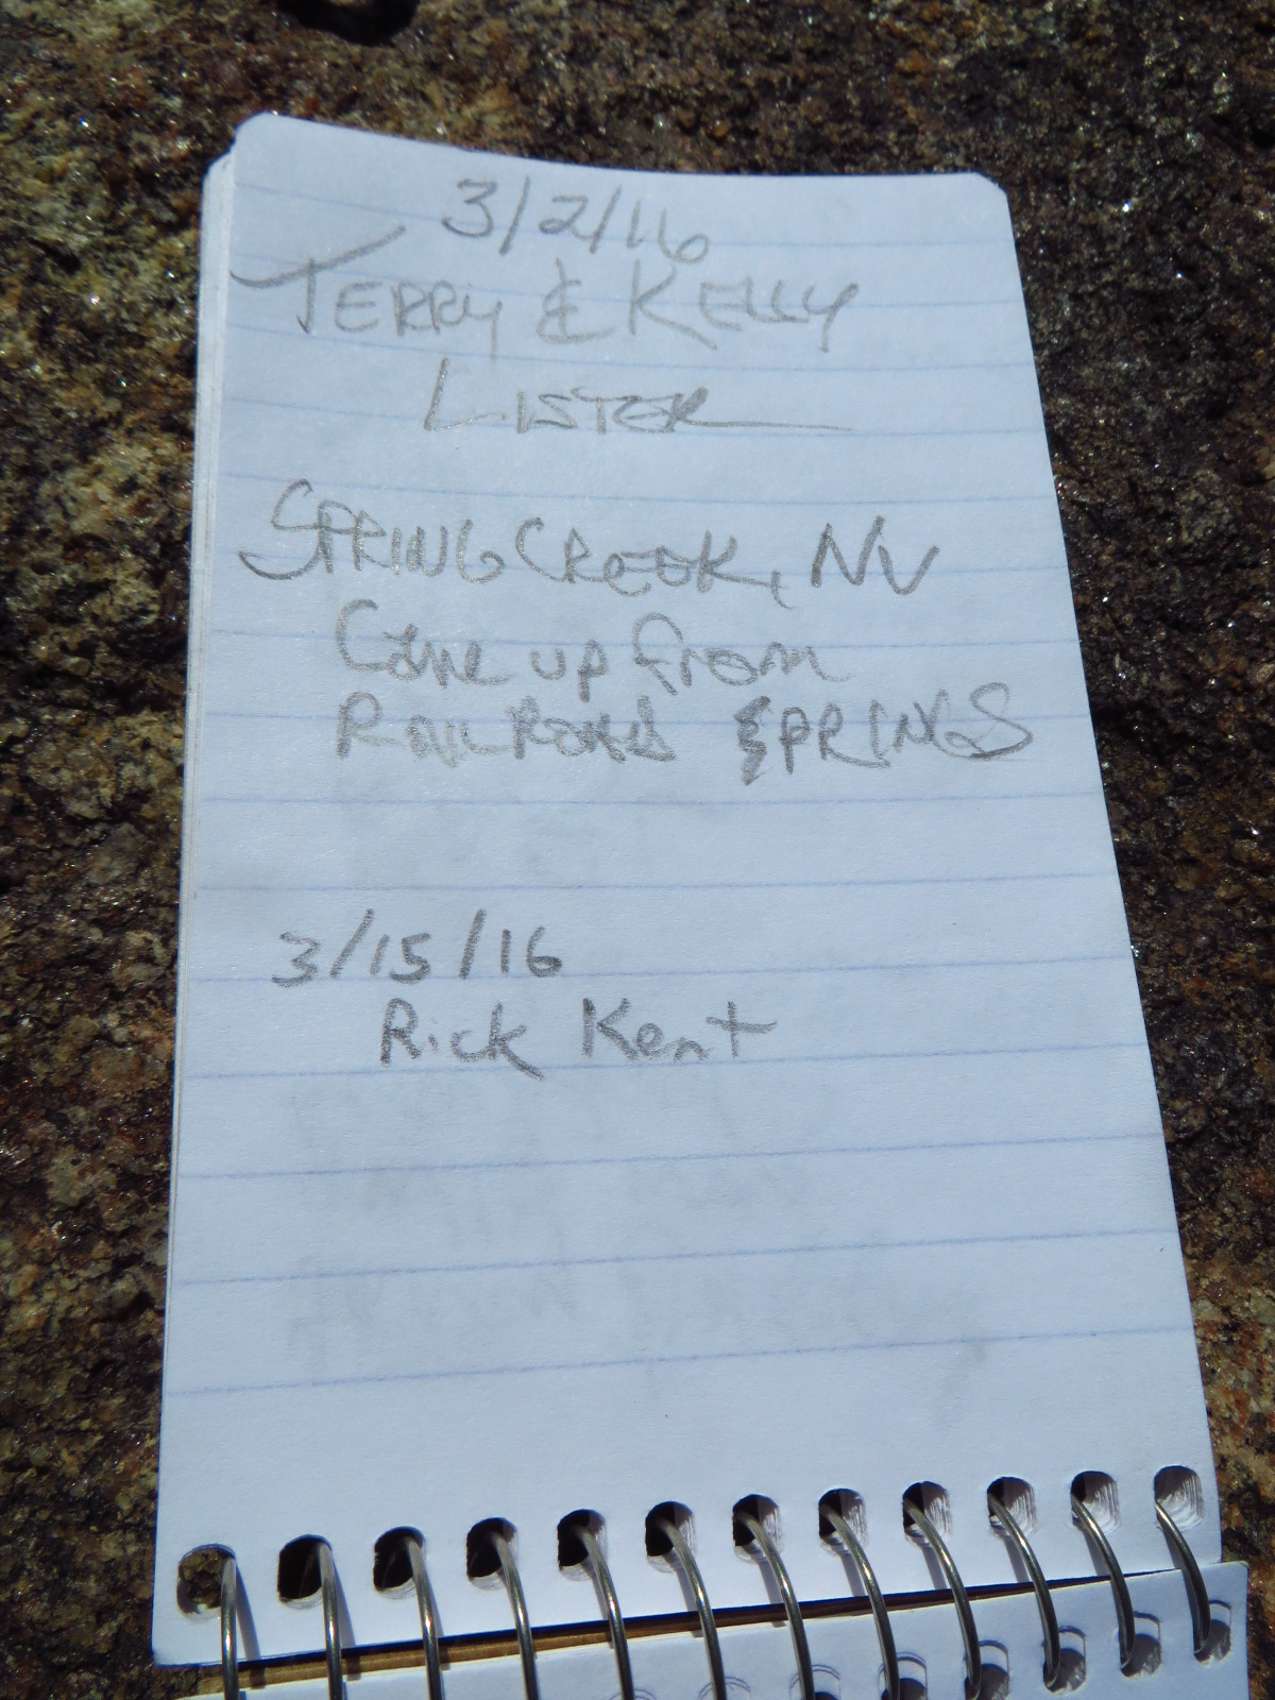 3/2/16
TERRY & KELLY
LISTER
SPRING CREEK, NV
Came up from
RAILROAD SPRINGS
3/15/16
Rick Kent